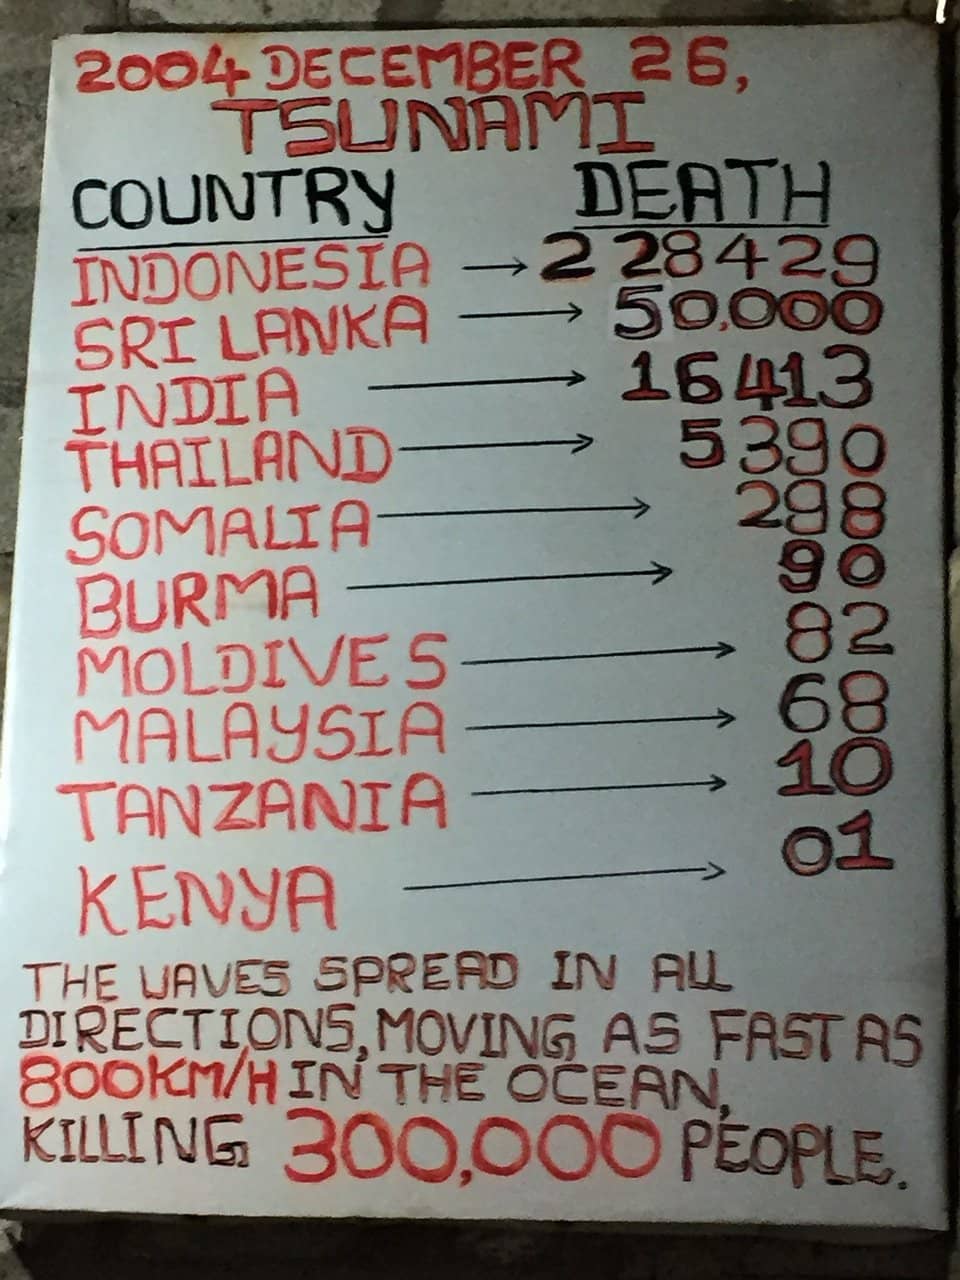 2004 DECEMBER 26,
TSUNAMI
COUNTRY DEATH
INDONESIA → 228429
SRI LANKA → 50,000
INDIA → 16413
THAILAND → 5390
SOMALIA → 298
BURMA → 90
MOLDIVES → 82
MALAYSIA → 68
TANZANIA → 10
KENYA → 01
THE WAVES SPREAD IN ALL
DIRECTIONS, MOVING AS FAST AS
800KM/H IN THE OCEAN,
KILLING 300,000 PEOPLE.